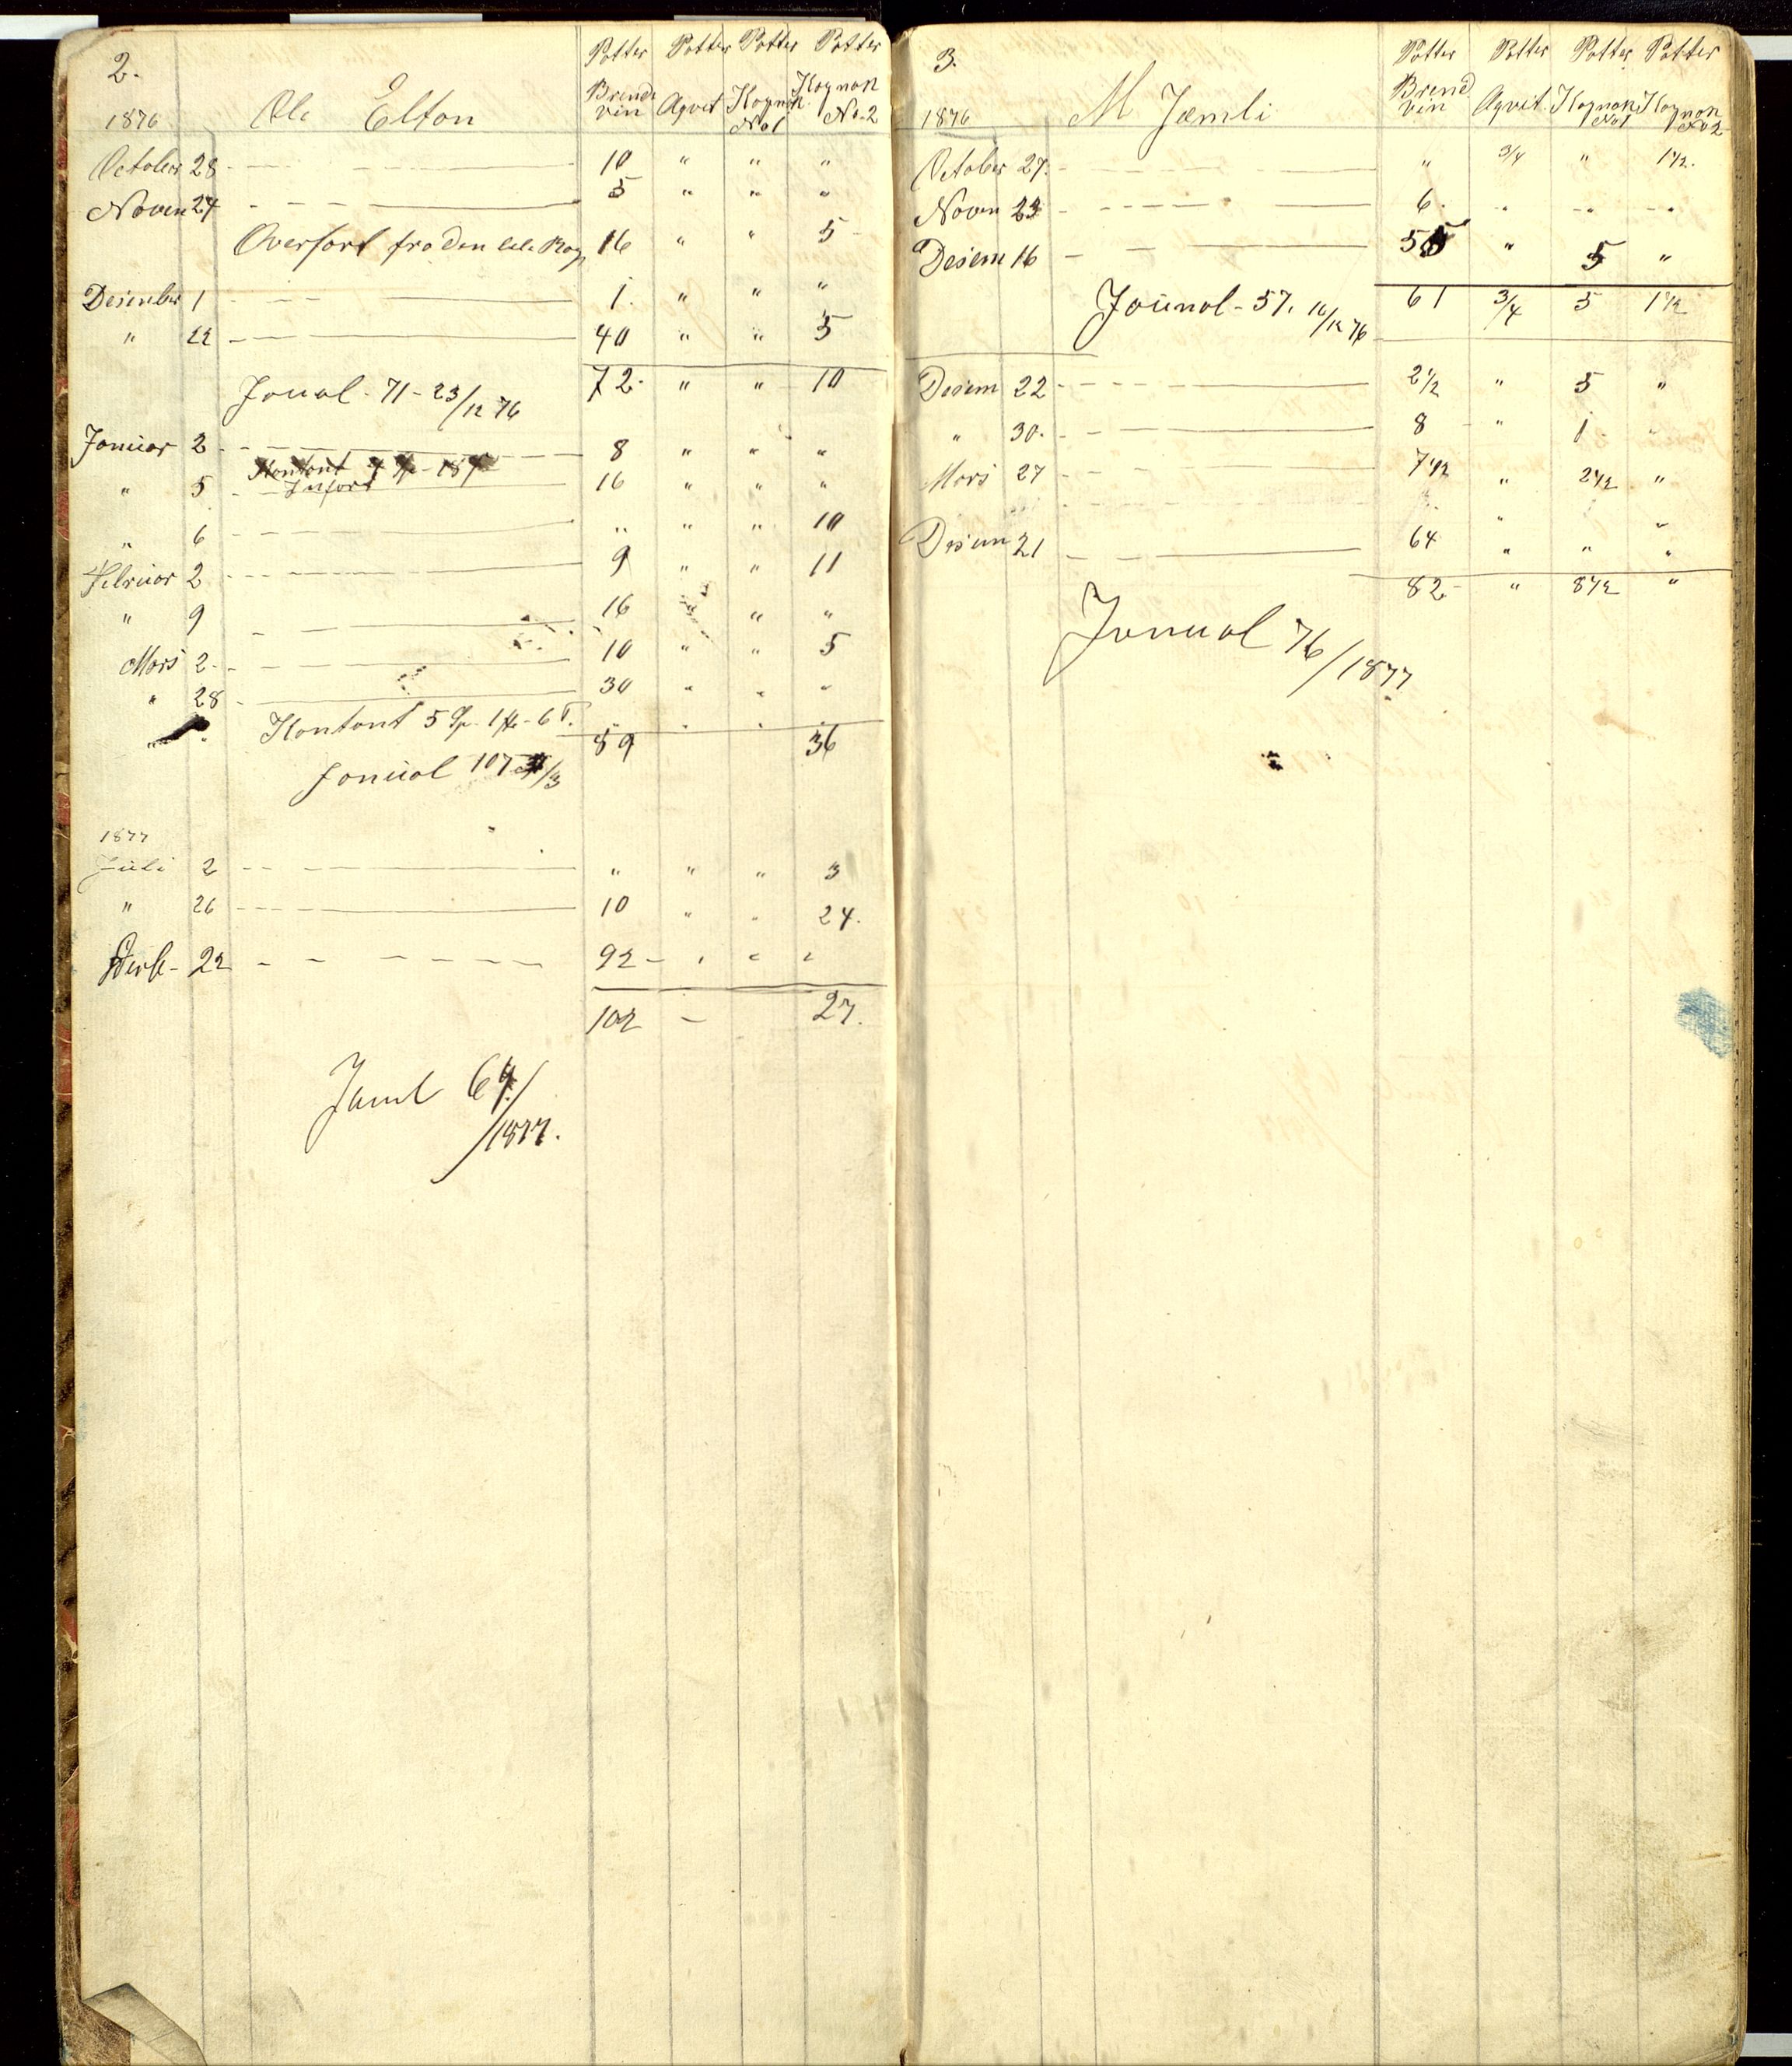 2.
Potter Potter Potter Potter
1876 Ole Elton Brende vin Aqvit Kognak No 1 Kognak No. 2
October 28 - - - 10 " " "
Noven 24 - - - 5 " " "
Overfort fra den Bog 16 " " 5
Desember 1 - - - 1. " " "
" 22 - - - 40 " " 5
72 - " " 10
Joual - 71 - 23/12 76
Januar 2 - - - 8 " " "
Kontant
" 5 - Infort 16 " " "
" 6 - - - " " " 10
Februar 2 - - - 9 " " 11
" 9 - - - 16 " " "
Mars 2 - - - 10 " " 5
" 28 - - - 30 " " "
Kontant 5 Sp - 1 - 6
89 36
Jonüal 107 /3
1877
Juli 2 - - - " " " 3
" 26 - - - 10 " " 24.
22 - - - 92 - " " "
102 - 27.
Jaml 64/1877.
3.
Potter Potter Potter Potter
1876 M Jæmli Brend vin Aqvit. Kognak No 1 Kognak No 2
October 27. - - - " 3/4 " 1 1/2.
Noven 23 - - - 6. " " "
Desem 16 - - - 55 " 5 "
61 3/4 5 1 1/2
Joünal - 57. 16/12 76
Desem 22 - - - 2 1/2 " 5 "
" 30. - - - 8 " 1 "
Mars 27 - - - 7 1/2 " 2 1/2 "
Desem 21 - - - 64 " " "
82 - " 8 1/2 "
Jonual 76/1877